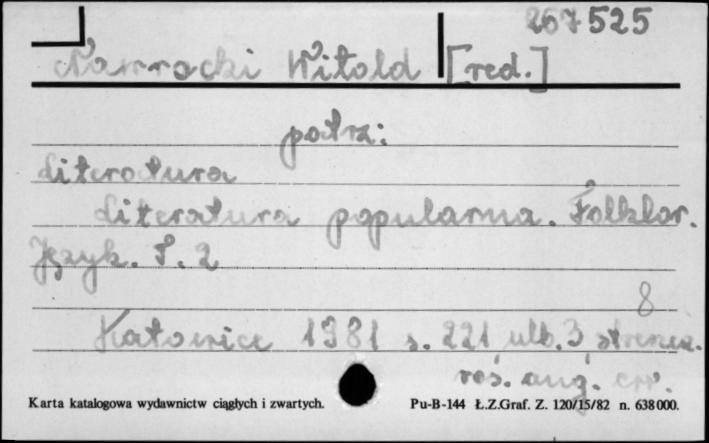 267525
Nawrocki Witold [red.]
patrz:
Literatura
Literatura popularna. Folklor.
Język. T. 2
8
Katowice 1981 s. 221 ulb. 3 streszcz.
roś. ang. err.
Karta katalogowa wydawnictw ciągłych i zwartych. Pu-B-144 Ł.Z.Graf. Z. 120/15/82 n. 638000.